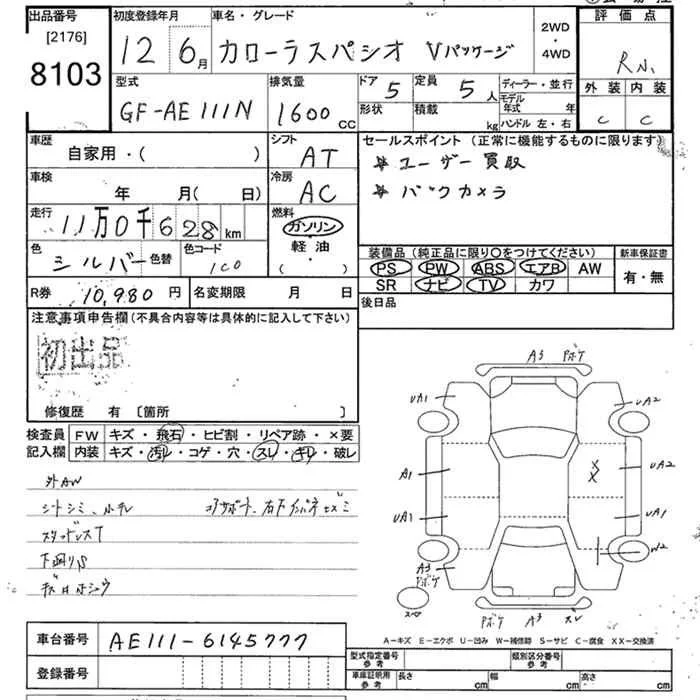 出品番号 初度登録年月 車名・グレード 2WD・4WD 評価点
[2176]
8103 12 6月 カローラスパシオ Vパッケージ
型式 排気量 ドア 5 定員 5人 ディーラー・並行 外装 内装
GF-AE111N 1600cc 形状 積載 kg モデル年式 年 C C
ハンドル 左・右
車歴 シフト セールスポイント (正常に機能するものに限ります)
自家用・( ) AT ＊ユーザー買取
車検 冷房 ＊バックカメラ
年 月(日) AC
走行 燃料
11万0千628km ガソリン
軽油 装備品 (純正品に限り○をつけてください) 新車保証書
色 シルバー 色替 色コード 1C0 ・( ) PS PW ABS エアB AW 有・無
SR ナビ TV カワ
R券 10,980円 名変期限 月 日 後日品
注意事項申告欄(不具合内容等は具体的に記入して下さい)
初出品
修復歴 有 [箇所 ]
検査員 FW キズ・飛石・ヒビ割・リペア跡・×要
記入欄 内装 キズ・汚レ・コゲ・穴・スレ・キレ・破レ
外AW
スタッドレスT
下廻りS
A3 ボケ
UA1 UA2
A1 UA2
X X
UA1 UA1
A3 ボケ W2
ボケ A3
A-キズ E-エクボ U-凹み W-補修跡 S-サビ C-腐食 XX-交換済
車台番号 AE111-6145777
登録番号
型式指定番号 参考 類別区分番号 参考
車庫証明用 参考 長さ cm 幅 cm 高さ cm